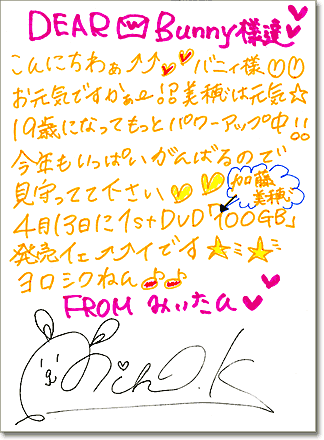 DEAR Bunny様達
こんにちわぁ⤴⤴♥♥バニィ様♡♡
お元気ですかぁ 美穂は元気☆
19歳になってもっとパワーアップ中!!
今年もいっぱいがんばるので
見守ってて下さい♥♥
加藤美穂
4月13日に1st DVD「100GB」
発売イェ⤴⤴イです★ミ★ミ
ヨロシクねん♪♪
FROM みぃたん♥♥